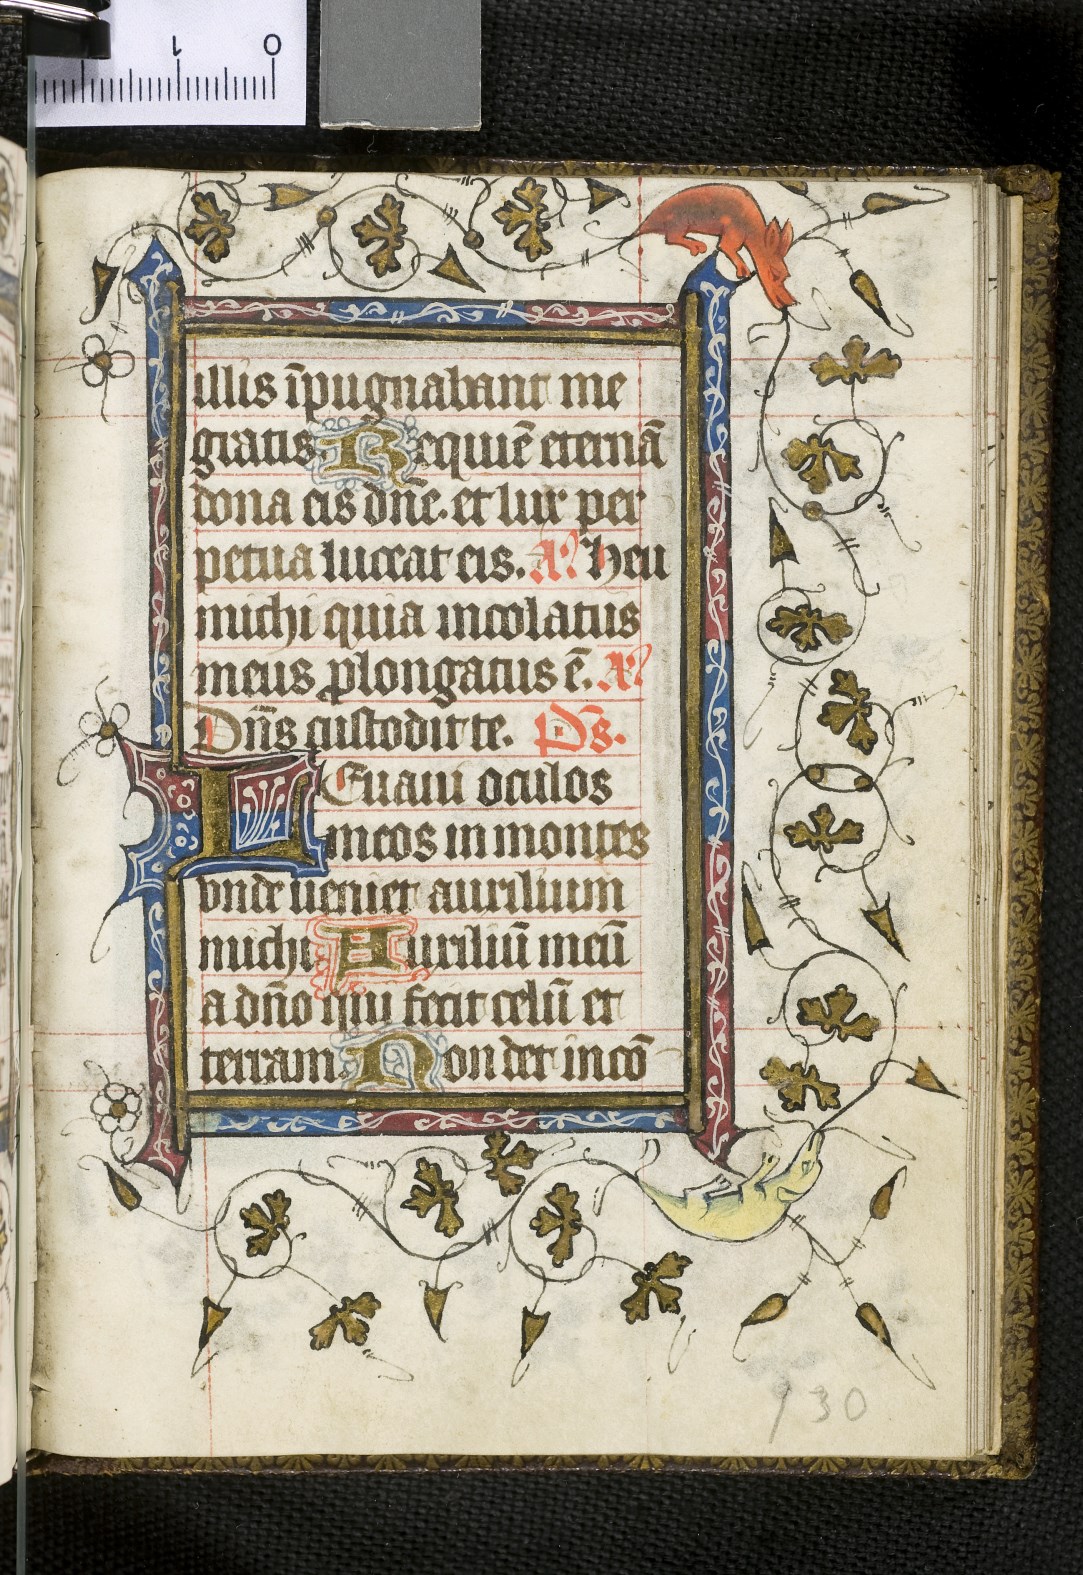 1 0
illis īpugnabant me
gratis. Requiē eternā
dona eis dn̄e. et lux per
petua luceat eis. A᷒ Heu
michi quia incolatus
meus ꝓlongatus ē. A᷒
Dn̄s custodit te. Ps.
LEuaui oculos
meos in montes
vnde ueniet auxilium
michi Auxiliū meū
a dn̄o qui fecit celū et
terram. Non det in cō
130